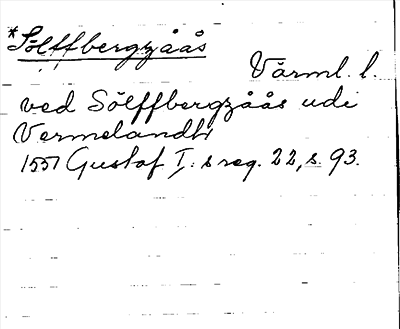 *Sölffbergzåås
Värml. l.
ved Sölffbergzåås udi
Vermelandh
1551 Gustaf I: s reg. 22, s. 93.